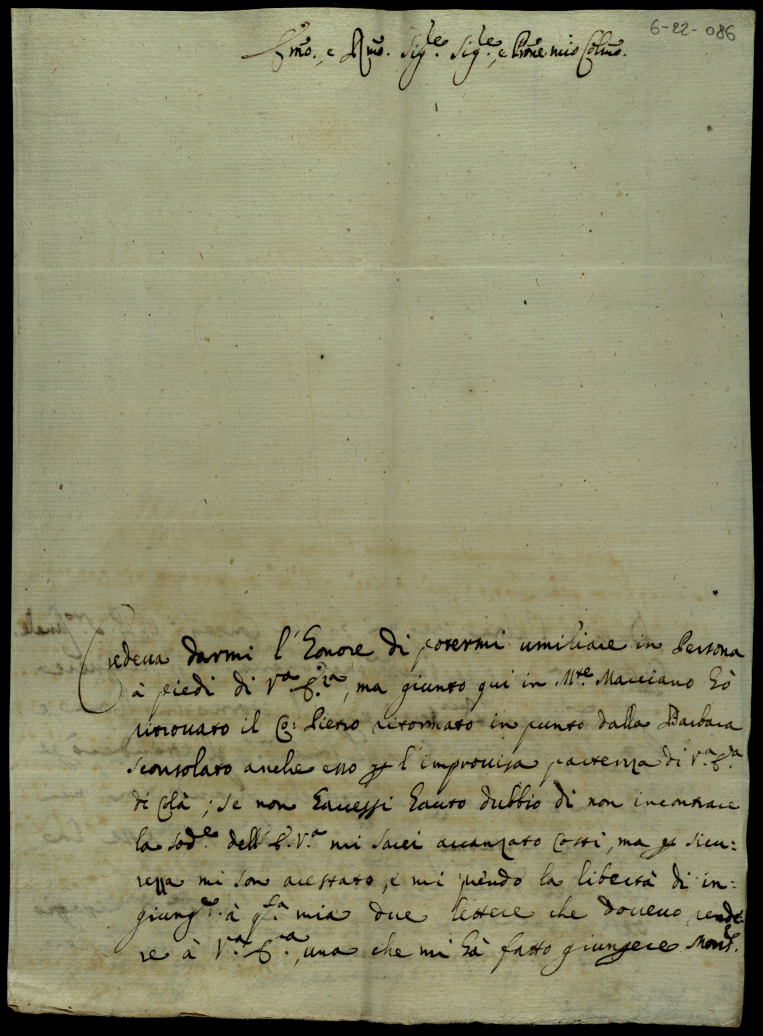 6-22-086
Emo. e Rmo. Sig.re Sig.re, e Prone mio Colmo.
Credeva darmi l'Honore di potermi umiliare in Persona
à piedi di V.a E.za, ma giunto qui in M.te Marciano hò
ritrovato il Co: Pietro ritornato in punto dalla Barbara
sconsolato anche esso p l'improvisa partenza di V.a E.za
di Colà; se non havessi hauto dubbio di non incontrare
la sod.e dell'E. V.a mi sarei avanzato costi, ma p sicu:
rezza mi son arestato, e mi prendo la libertà di in:
giung.re à q.sta mia due lettere che dovevo rende:
re à V.a E.za, una che mi hà fatto giungere Mons.r